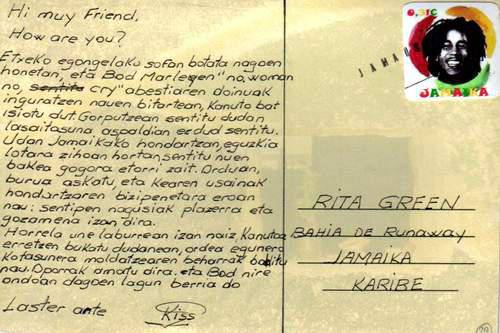 Hi muy Friend,
How are you?
Etxeko egongelako sofan botata nagoen
honetan, eta Bod Marleyen "no, woman
no, sentitu cry" abestiaren doinuak
inguratzen nauen bitartean, Kanuto bat
isiotu dut. Gorputzean sentitu dudan
lasaitasuna, aspaldian ez dud sentitu.
Udan Jamaikako hondartzan, eguzkia
lotara zihoan hortan, sentitu nuen
bakea gogora etorri zait. Orduan,
burua askatu, eta Kearen usainak
hondartzaren bizipenetara eroan
nau: sentipen nagusiak plazerra eta
gozamena izan dira.
Horrela une laburrean izan naiz Kanutoa
erretzen bukatu dudanean, ordea egunero
Kotasunera moldatzearen beharrak bahitu
nau. Oporrak amaitu dira. eta Bod nire
ondoan dagoen lagun berria da
Laster arte Kiss
0,31C
JAMAIKA
JAMAIKA
RITA GREEN
BAHIA DE Runaway
JAMAIKA
KARIBE